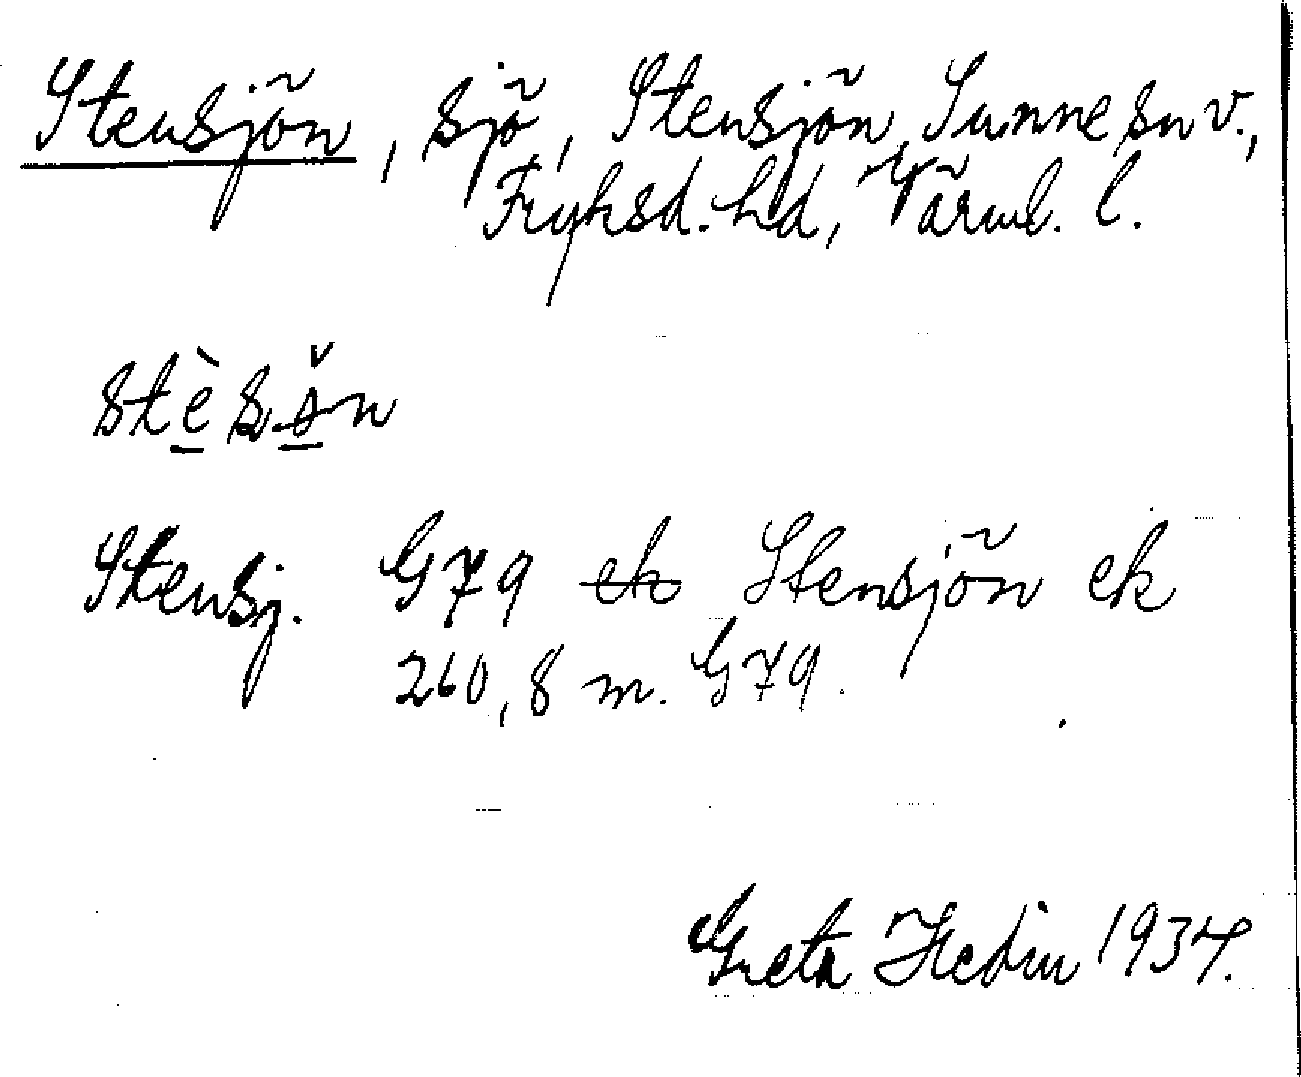 Stensjön, sjö, Stensjön, Sunne sn v.,
Fryksd. hd, Värml. l.
Stensj. G79 ek Stensjön ek
260,8 m. G79.
Greta Hedin 1934.